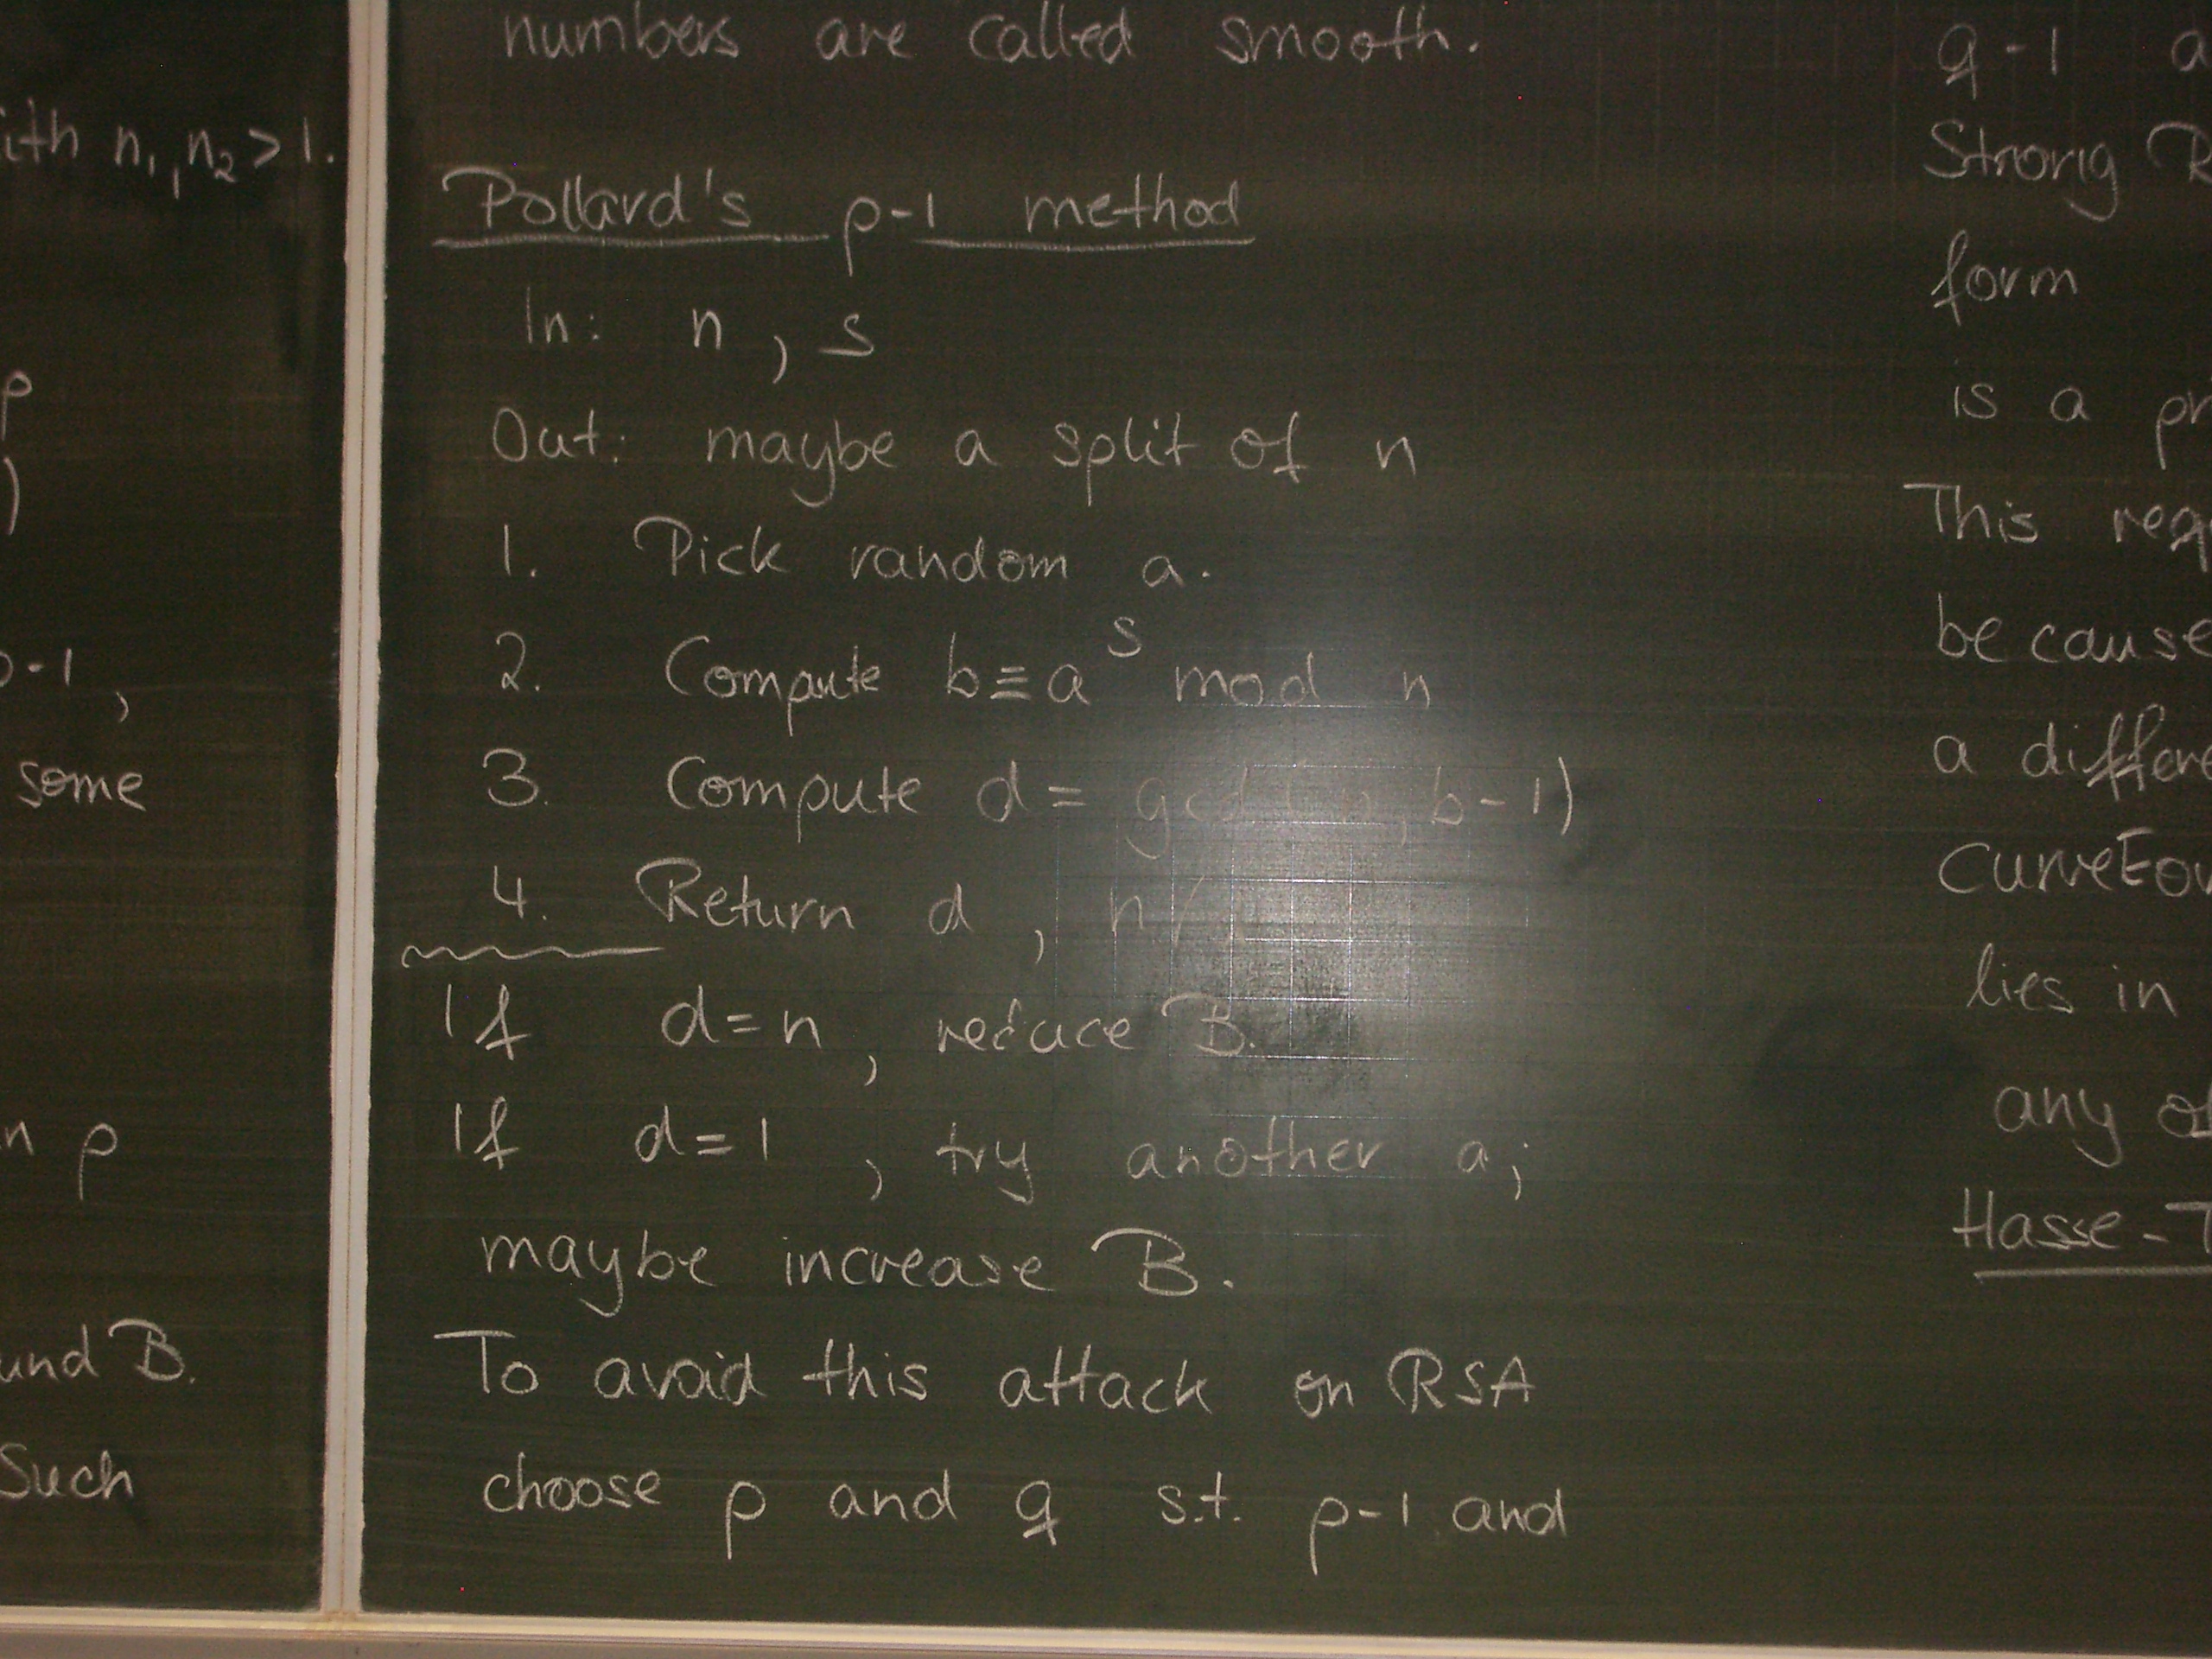 ith n₁, n₂ > 1.
p
)
p-1,
some
n p
und B.
Such
numbers are called smooth.
Pollard's p-1 method
In: n, s
Out: maybe a split of n
1. Pick random a.
2. Compute b≡a^s mod n
3. Compute d = gcd(n, b-1)
4. Return d, n/
If d=n, reduce B.
If d=1, try another a;
maybe increase B.
To avoid this attack on RSA
choose p and q s.t. p-1 and
q-1 a
Strong R
form
is a pr
This req
because
a differe
lies in
any of
Hasse-T